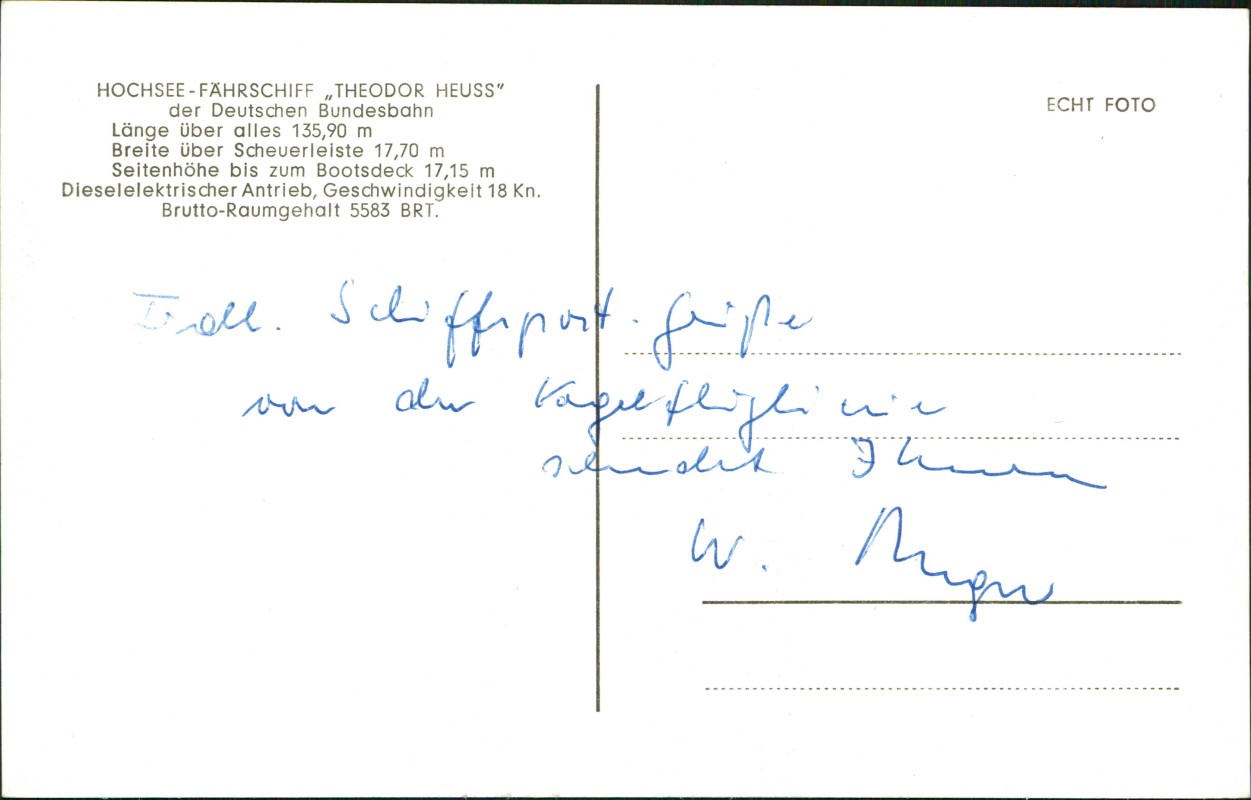 HOCHSEE-FÄHRSCHIFF „THEODOR HEUSS"
der Deutschen Bundesbahn
Länge über alles 135,90 m
Breite über Scheuerleiste 17,70 m
Seitenhöhe bis zum Bootsdeck 17,15 m
Dieselelektrischer Antrieb, Geschwindigkeit 18 Kn.
Brutto-Raumgehalt 5583 BRT.
ECHT FOTO
Frdl. Schiffspost-Grüße
von der Vogelfluglinie
sendet Ihnen
W.